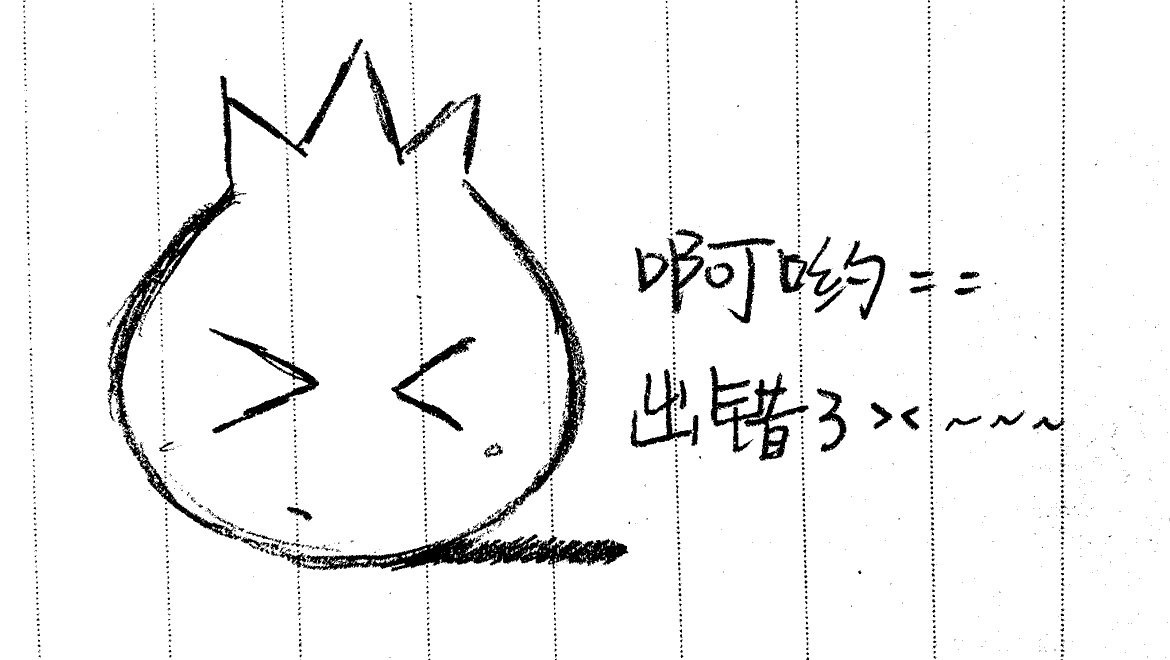 啊哟==
出错了><~~~